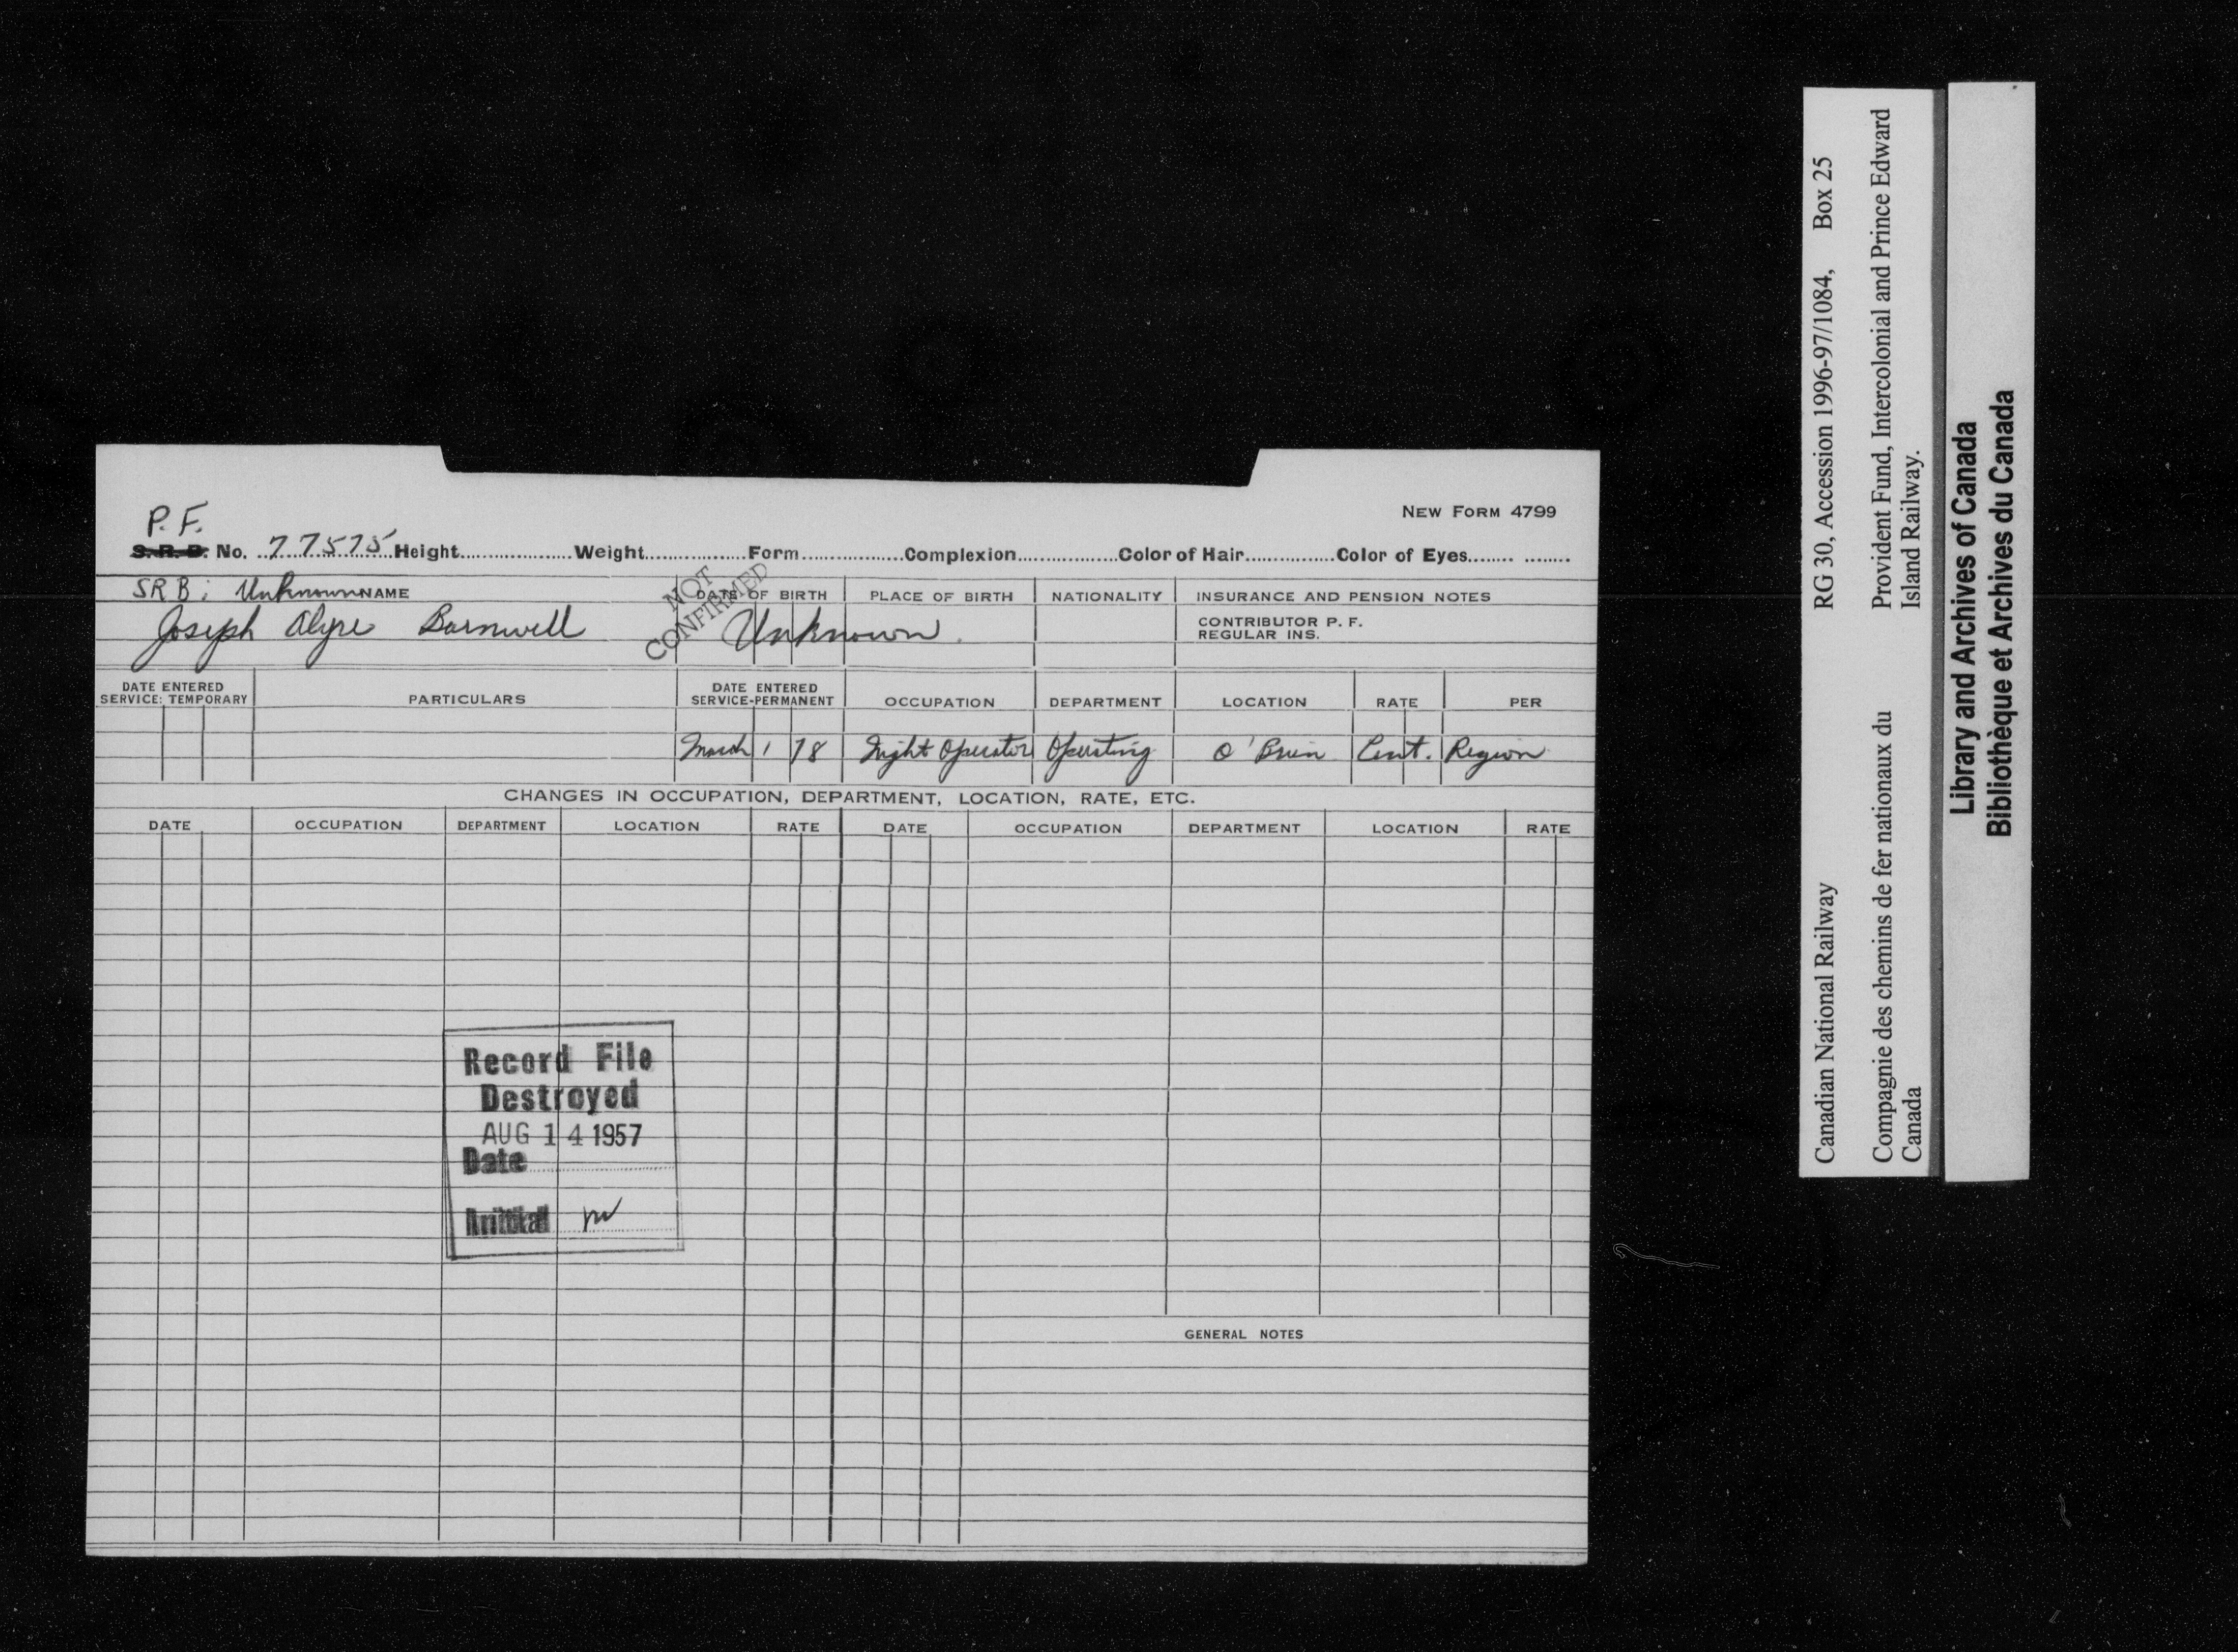 NEW FORM 4799
P.F.
S.R.B. No. 77575 Height Weight Form Complexion Color of Hair Color of Eyes
SRB: Unknown NAME DATE OF BIRTH PLACE OF BIRTH NATIONALITY INSURANCE AND PENSION NOTES
NOT
CONFIRMED
Joseph Alyre Barnwell Unknown. CONTRIBUTOR P. F.
REGULAR INS.
DATE ENTERED
SERVICE: TEMPORARY PARTICULARS DATE ENTERED
SERVICE-PERMANENT OCCUPATION DEPARTMENT LOCATION RATE PER
March 1 18 Night Operator Operating O'Brien Cent. Region
CHANGES IN OCCUPATION, DEPARTMENT, LOCATION, RATE, ETC.
DATE OCCUPATION DEPARTMENT LOCATION RATE DATE OCCUPATION DEPARTMENT LOCATION RATE
Record File
Destroyed
AUG 14 1957
Date
Initial
GENERAL NOTES
Canadian National Railway RG 30, Accession 1996-97/1084, Box 25
Compagnie des chemins de fer nationaux du Provident Fund, Intercolonial and Prince Edward
Canada Island Railway.
Library and Archives of Canada
Bibliothèque et Archives du Canada